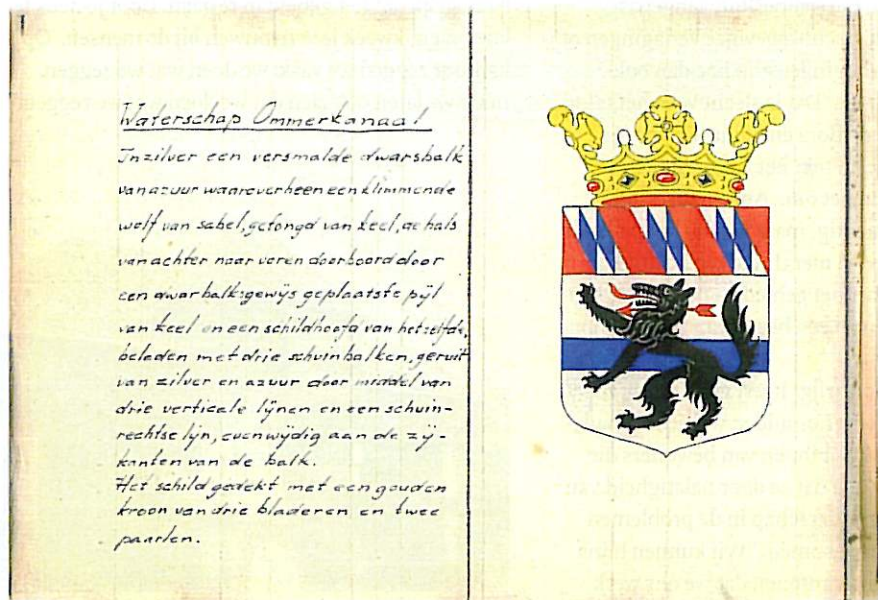 Waterschap Ommerkanaal
In zilver een versmalde dwarsbalk
van azuur waaroverheen een klimmende
wolf van sabel, getongd van keel, de hals
van achter naar voren doorboord door
een dwarbalksgewijs geplaatste pijl
van keel en een schildhoofd van hetzelfde,
beladen met drie schuinbalken, geruit
van zilver en azuur door middel van
drie verticale lijnen en een schuin-
rechtse lijn, evenwijdig aan de zij-
kanten van de balk.
Het schild gedekt met een gouden
kroon van drie bladeren en twee
paarlen.